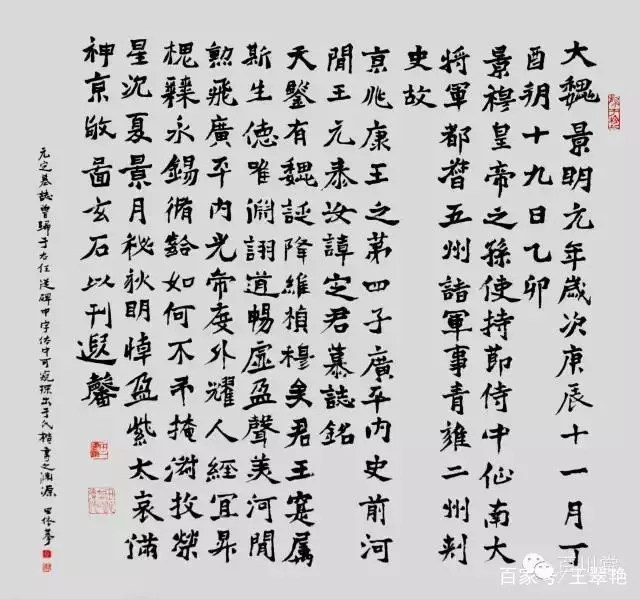 大魏景明元年歲次庚辰十一月丁
酉朔十九日乙卯
景穆皇帝之孫使持節侍中征南大
將軍都督五州諸軍事青雍二州刺
史故
京兆康王之第四子廣平內史前河
間王元泰安諱定君墓誌銘
天鑒有魏誕降維楨穆矣君王寔属
斯生德唯淵詡道暢虛盈聲美河間
勲飛廣平內光帝度外耀人經宜昇
槐棘永錫脩齡如何不弔掩投榮
星沉夏景月秘狄明悼盈紫太哀滿
神京敬啚玄石以刊遐馨
元定墓誌曾歸于右任從碑中字体中可窺探出于氏楷書之淵源
百川堂
百家号/王翠艳